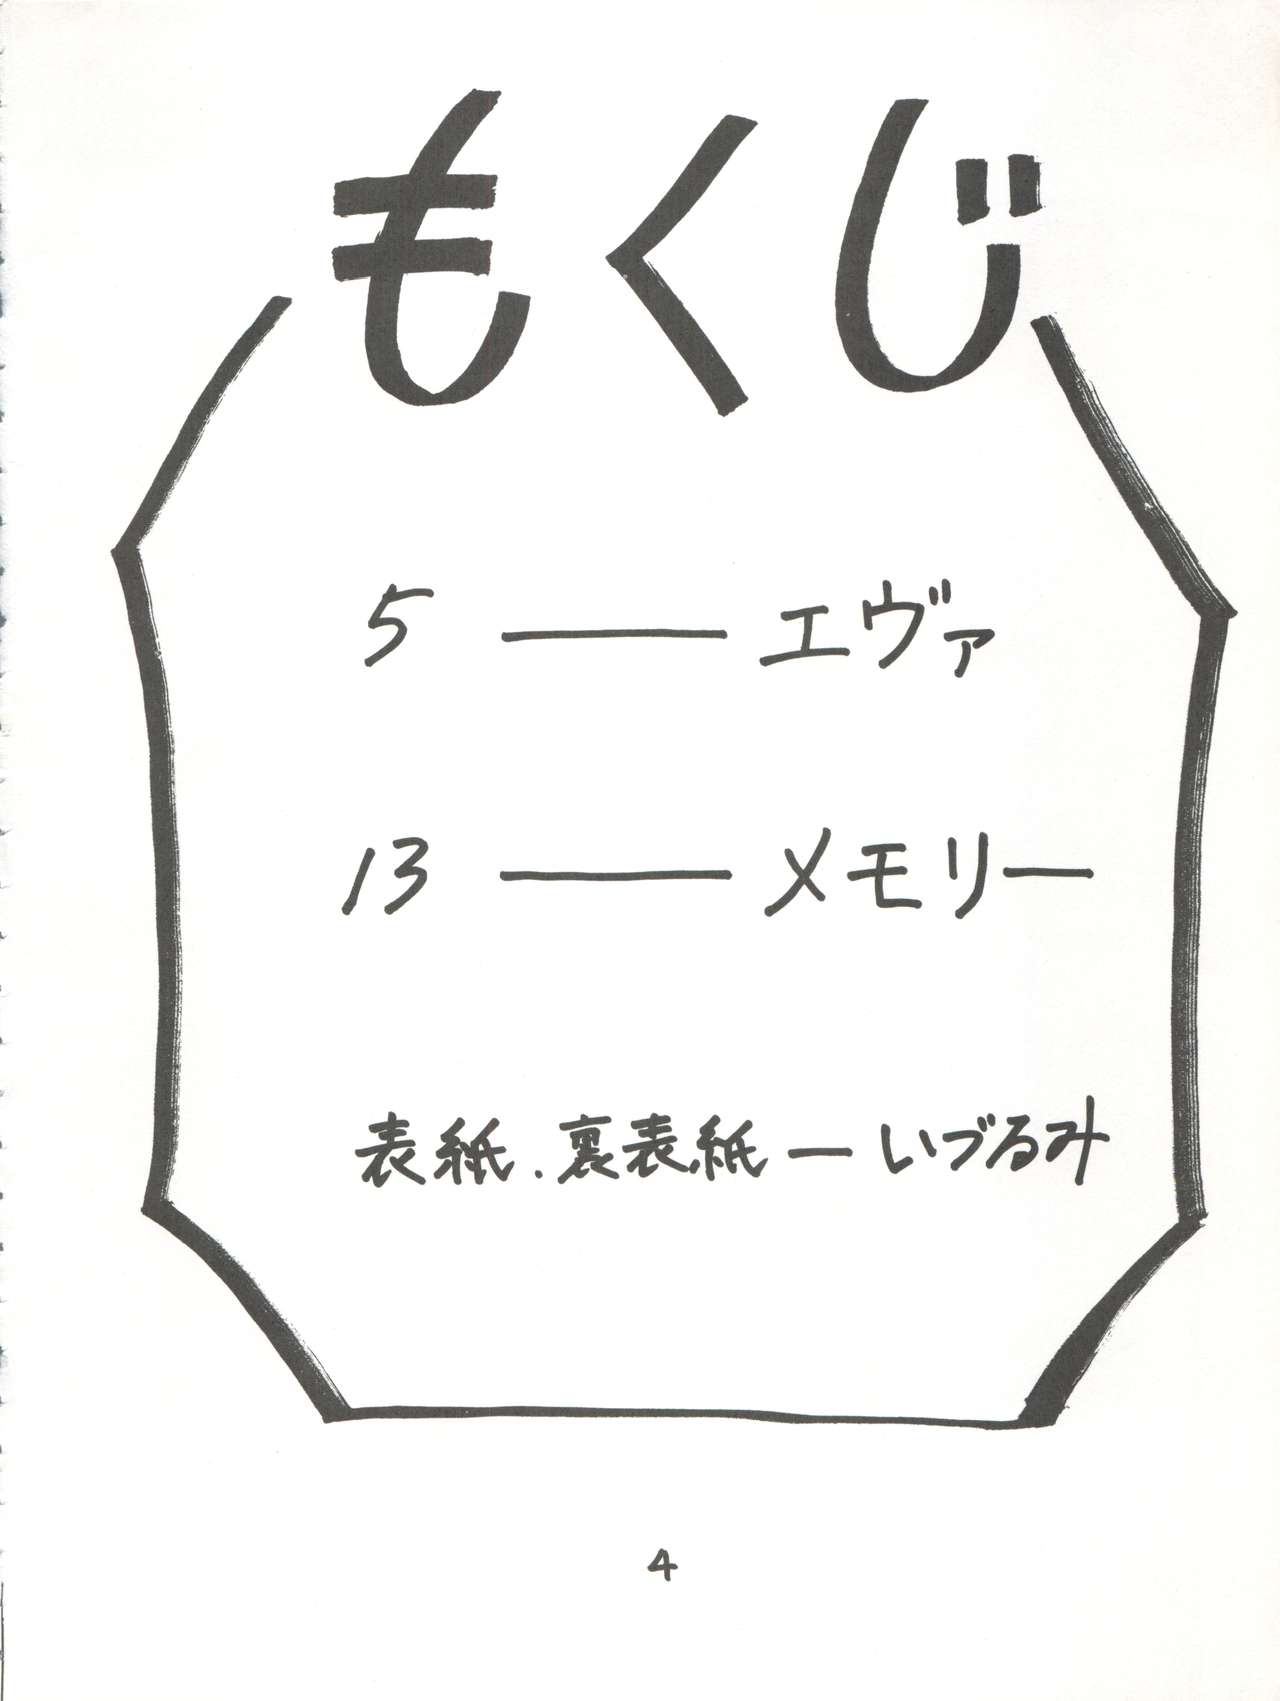 もくじ
5 ── エヴァ
13 ── メモリー
表紙、裏表紙 ─ いづるみ
4